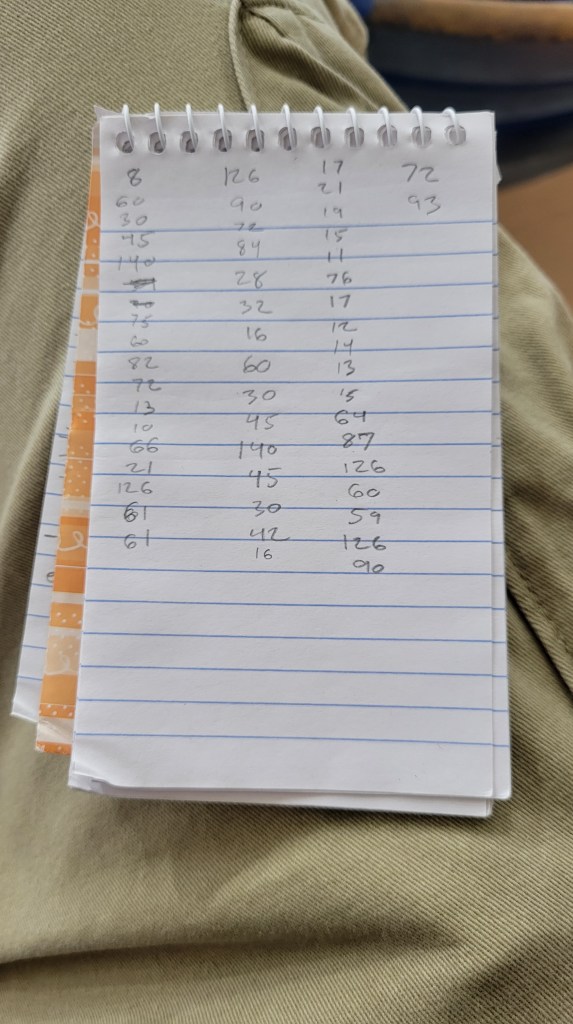 8
60
30
45
140
75
60
82
72
13
10
66
21
126
61
61
126
90
72
84
28
32
16
60
30
45
140
45
30
42
16
17
21
19
15
11
76
17
12
14
13
15
64
87
126
60
59
126
90
72
93